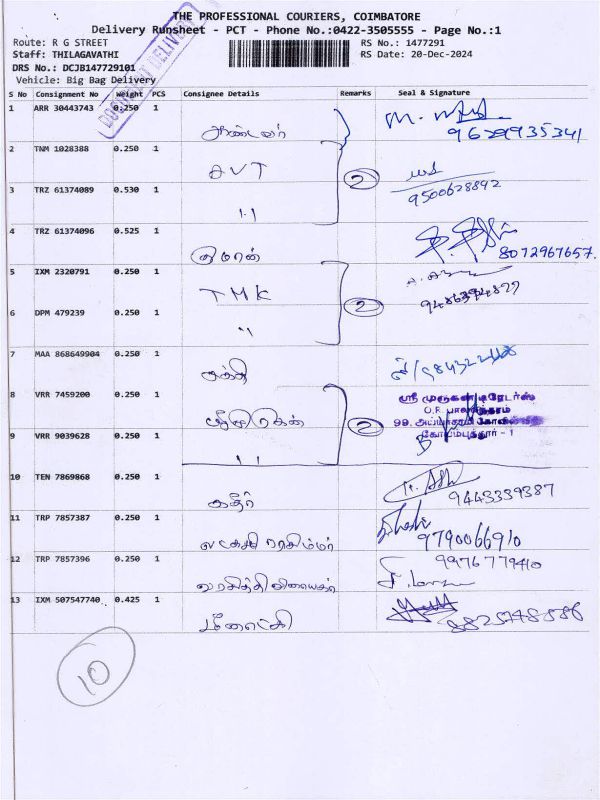 THE PROFESSIONAL COURIERS, COIMBATORE
Delivery Runsheet - PCT - Phone No.:0422-3505555 - Page No.:1
Route: R G STREET
RS No.: 1477291
Staff: THILAGAVATHI
RS Date: 20-Dec-2024
DRS No.: DCJB147729101
Vehicle: Big Bag Delivery
DOCUMENT DELIVERY
S No Consignment No Weight PCS Consignee Details Remarks Seal & Signature
1 ARR 30443743 0.250 1
9629935341
2 TNM 1028388 0.250 1 AVT
2
9500628892
3 TRZ 61374089 0.530 1 "
4 TRZ 61374096 0.525 1 குமரன்
8072967657
5 IXM 2320791 0.250 1 TMK
2
6 DPM 479239 0.250 1 "
7 MAA 868649904 0.250 1 சக்தி
8 VRR 7459200 0.250 1 ஸ்ரீமுருகன்
2
ஸ்ரீ முருகன் டிரேடர்ஸ்
99, அய்யாசாமி கோவில் வீதி
கோயம்புத்தூர் - 1
9 VRR 9039628 0.250 1 "
10 TEN 7869868 0.250 1 கதிர்
9443339387
11 TRP 7857387 0.250 1 லட்சுமி நரசிம்மர்
9790066910
12 TRP 7857396 0.250 1 வரசித்தி விநாயகர்
9976779410
13 IXM 507547740 0.425 1 மீனாட்சி
8825748586
10